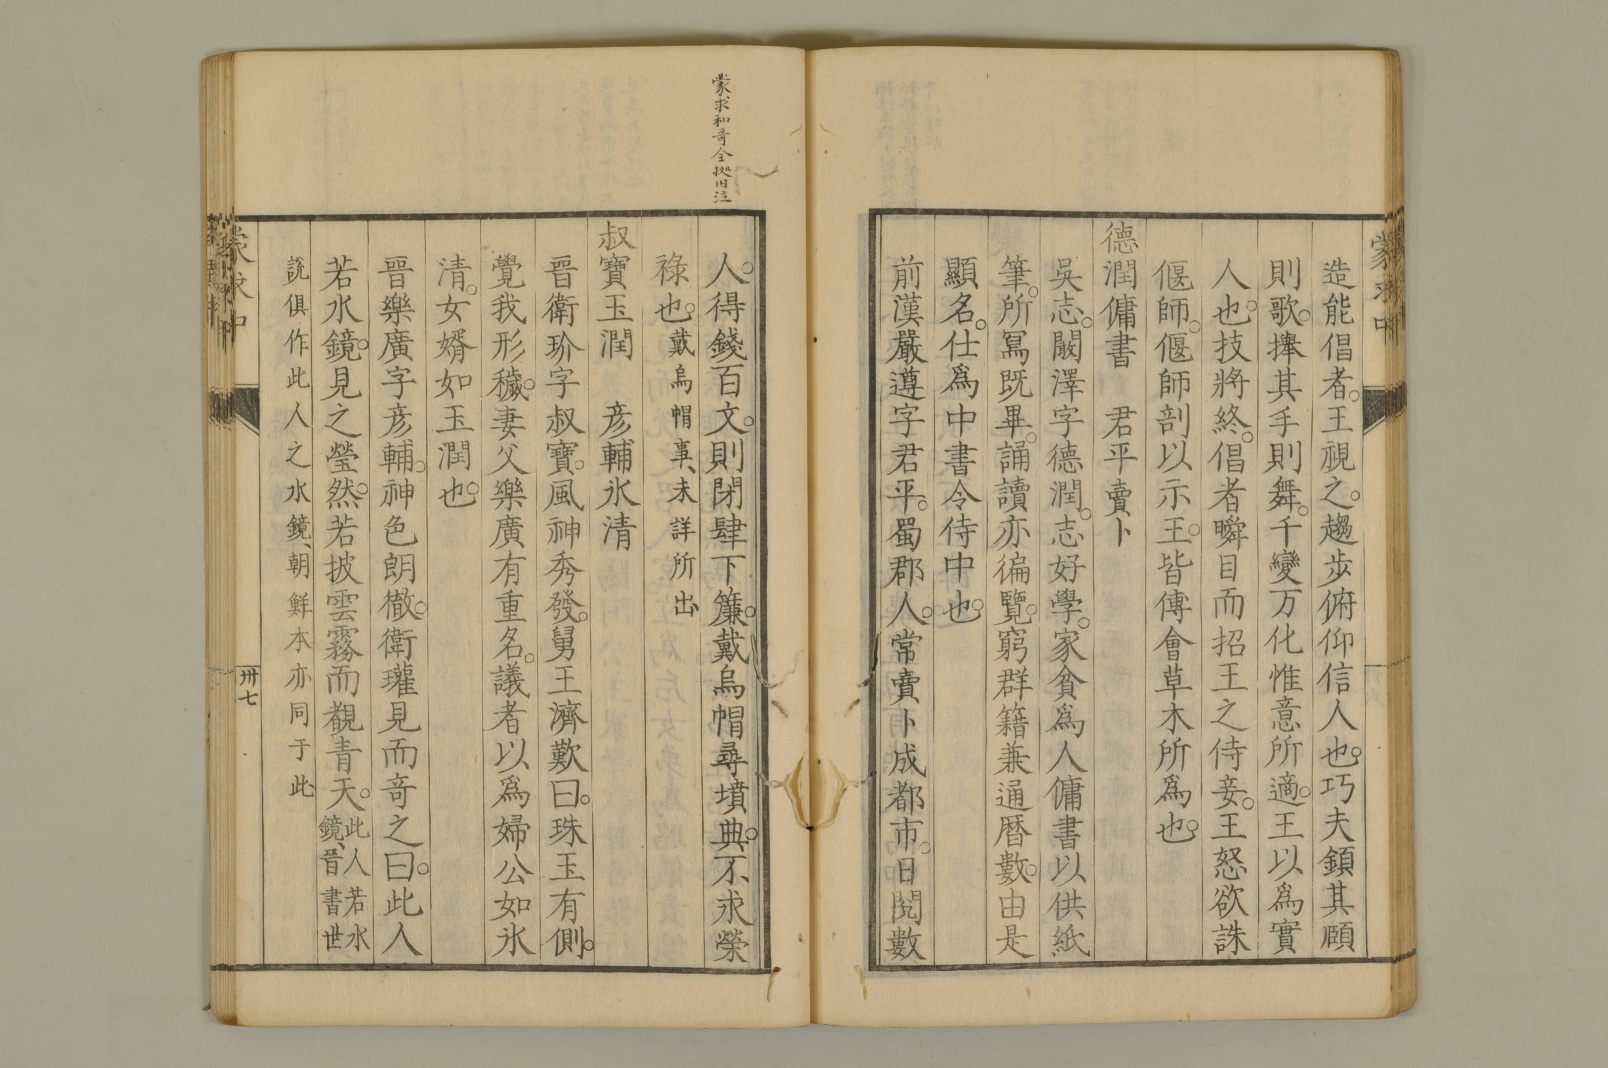 造能倡者。王視之。趨步俯仰信人也。巧夫鎮其頤
則歌。捧其手則舞。千變万化惟意所適。王以爲實
人也。技將終。倡者瞬目而招王之侍妾。王怒欲誅
偃師。偃師剖以示王。皆傅會草木所爲也。
德潤傭書　君平賣卜
吳志。闞澤字德潤。志好學。家貧爲人傭書以供紙
筆。所冩既畢。誦讀亦徧覽。窮群籍兼通暦數。由是
顯名。仕爲中書令侍中也。
前漢嚴遵字君平。蜀郡人。常賣卜成都市。日閱數
蒙求和哥全据旧注
人。得錢百文。則閉肆下簾。戴烏帽尋墳典。不求榮
祿也。戴烏帽事、未詳所出
叔寶玉潤　彦輔氷清
晉衛玠字叔寶。風神秀發。舅王濟歎曰。珠玉有側。
覺我形穢。妻父樂廣有重名。議者以爲婦公如氷
清。女婿如玉潤也。
晉樂廣字彦輔。神色朗徹。衛瓘見而竒之曰。此人
若水鏡。見之瑩然。若披雲霧而覩青天。此人若水
鏡、晉書世
説俱作此人之水鏡、朝鮮本亦同于此
蒙求中
卅七